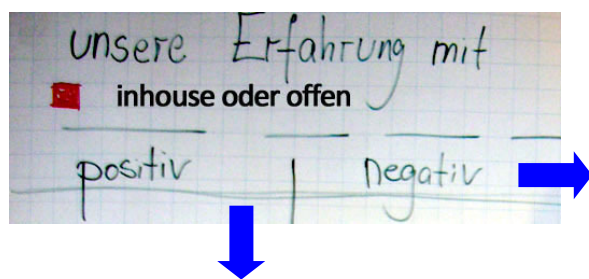 unsere Erfahrung mit
inhouse oder offen
positiv | negativ